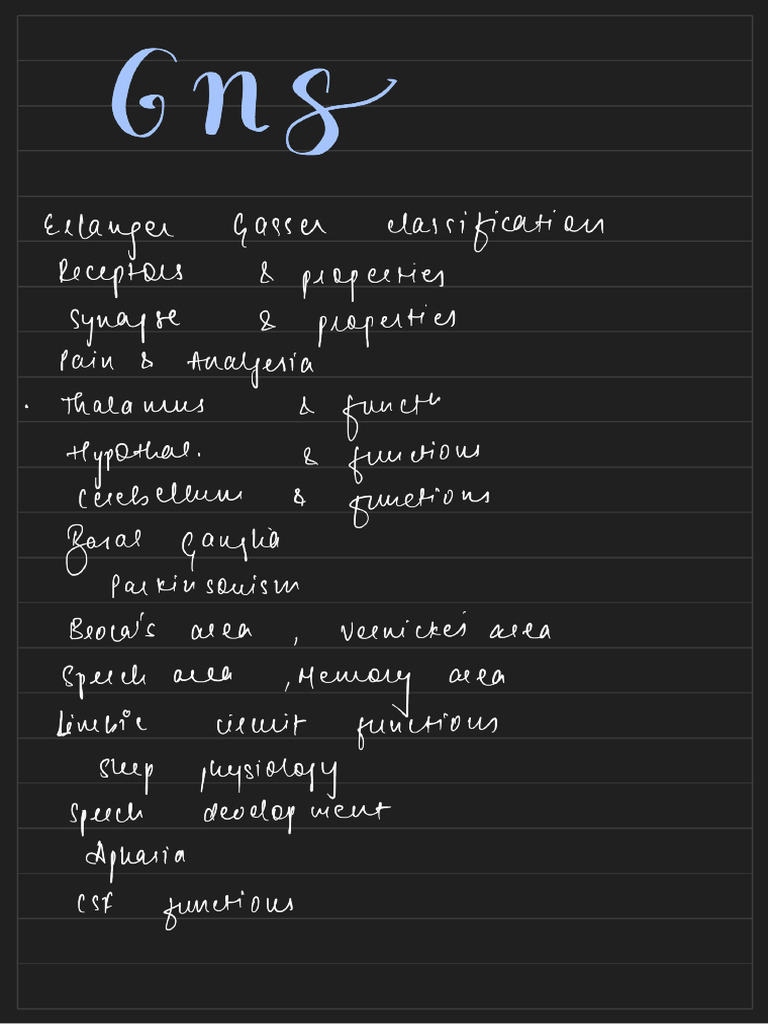 CNS
Erlanger Gasser classification
Receptors & properties
Synapse & properties
Pain & Analgesia
. Thalamus & functn
Hypothal. & functions
Cerebellum & functions
Basal Ganglia
Parkinsonism
Broca's area , Vernicke's area
Speech area , Memory area
Limbic circuit functions
Sleep physiology
Speech development
Aphasia
CSF functions